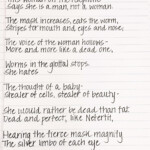 says she is a man, not a woman.
The mask increases, eats the worm,
Stripes for mouth and eyes and nose,
The voice of the woman hollows -
More and more like a dead one,
Worms in the glottal stops.
She hates
The thought of a baby -
Stealer of cells, stealer of beauty -
She would rather be dead than fat,
Dead and perfect, like Nefertit,
Hearing the fierce mask magnify
The silver limbo of each eye